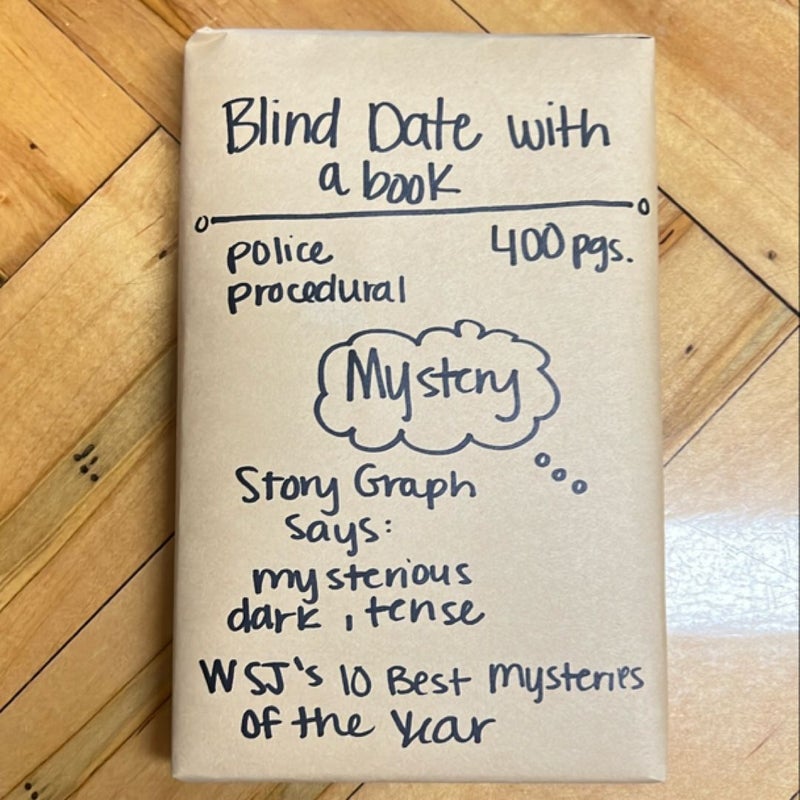 Blind Date with
a book
police 400 pgs.
procedural
Mystery
Story Graph
says:
mysterious
dark, tense
WSJ's 10 Best Mysteries
of the year